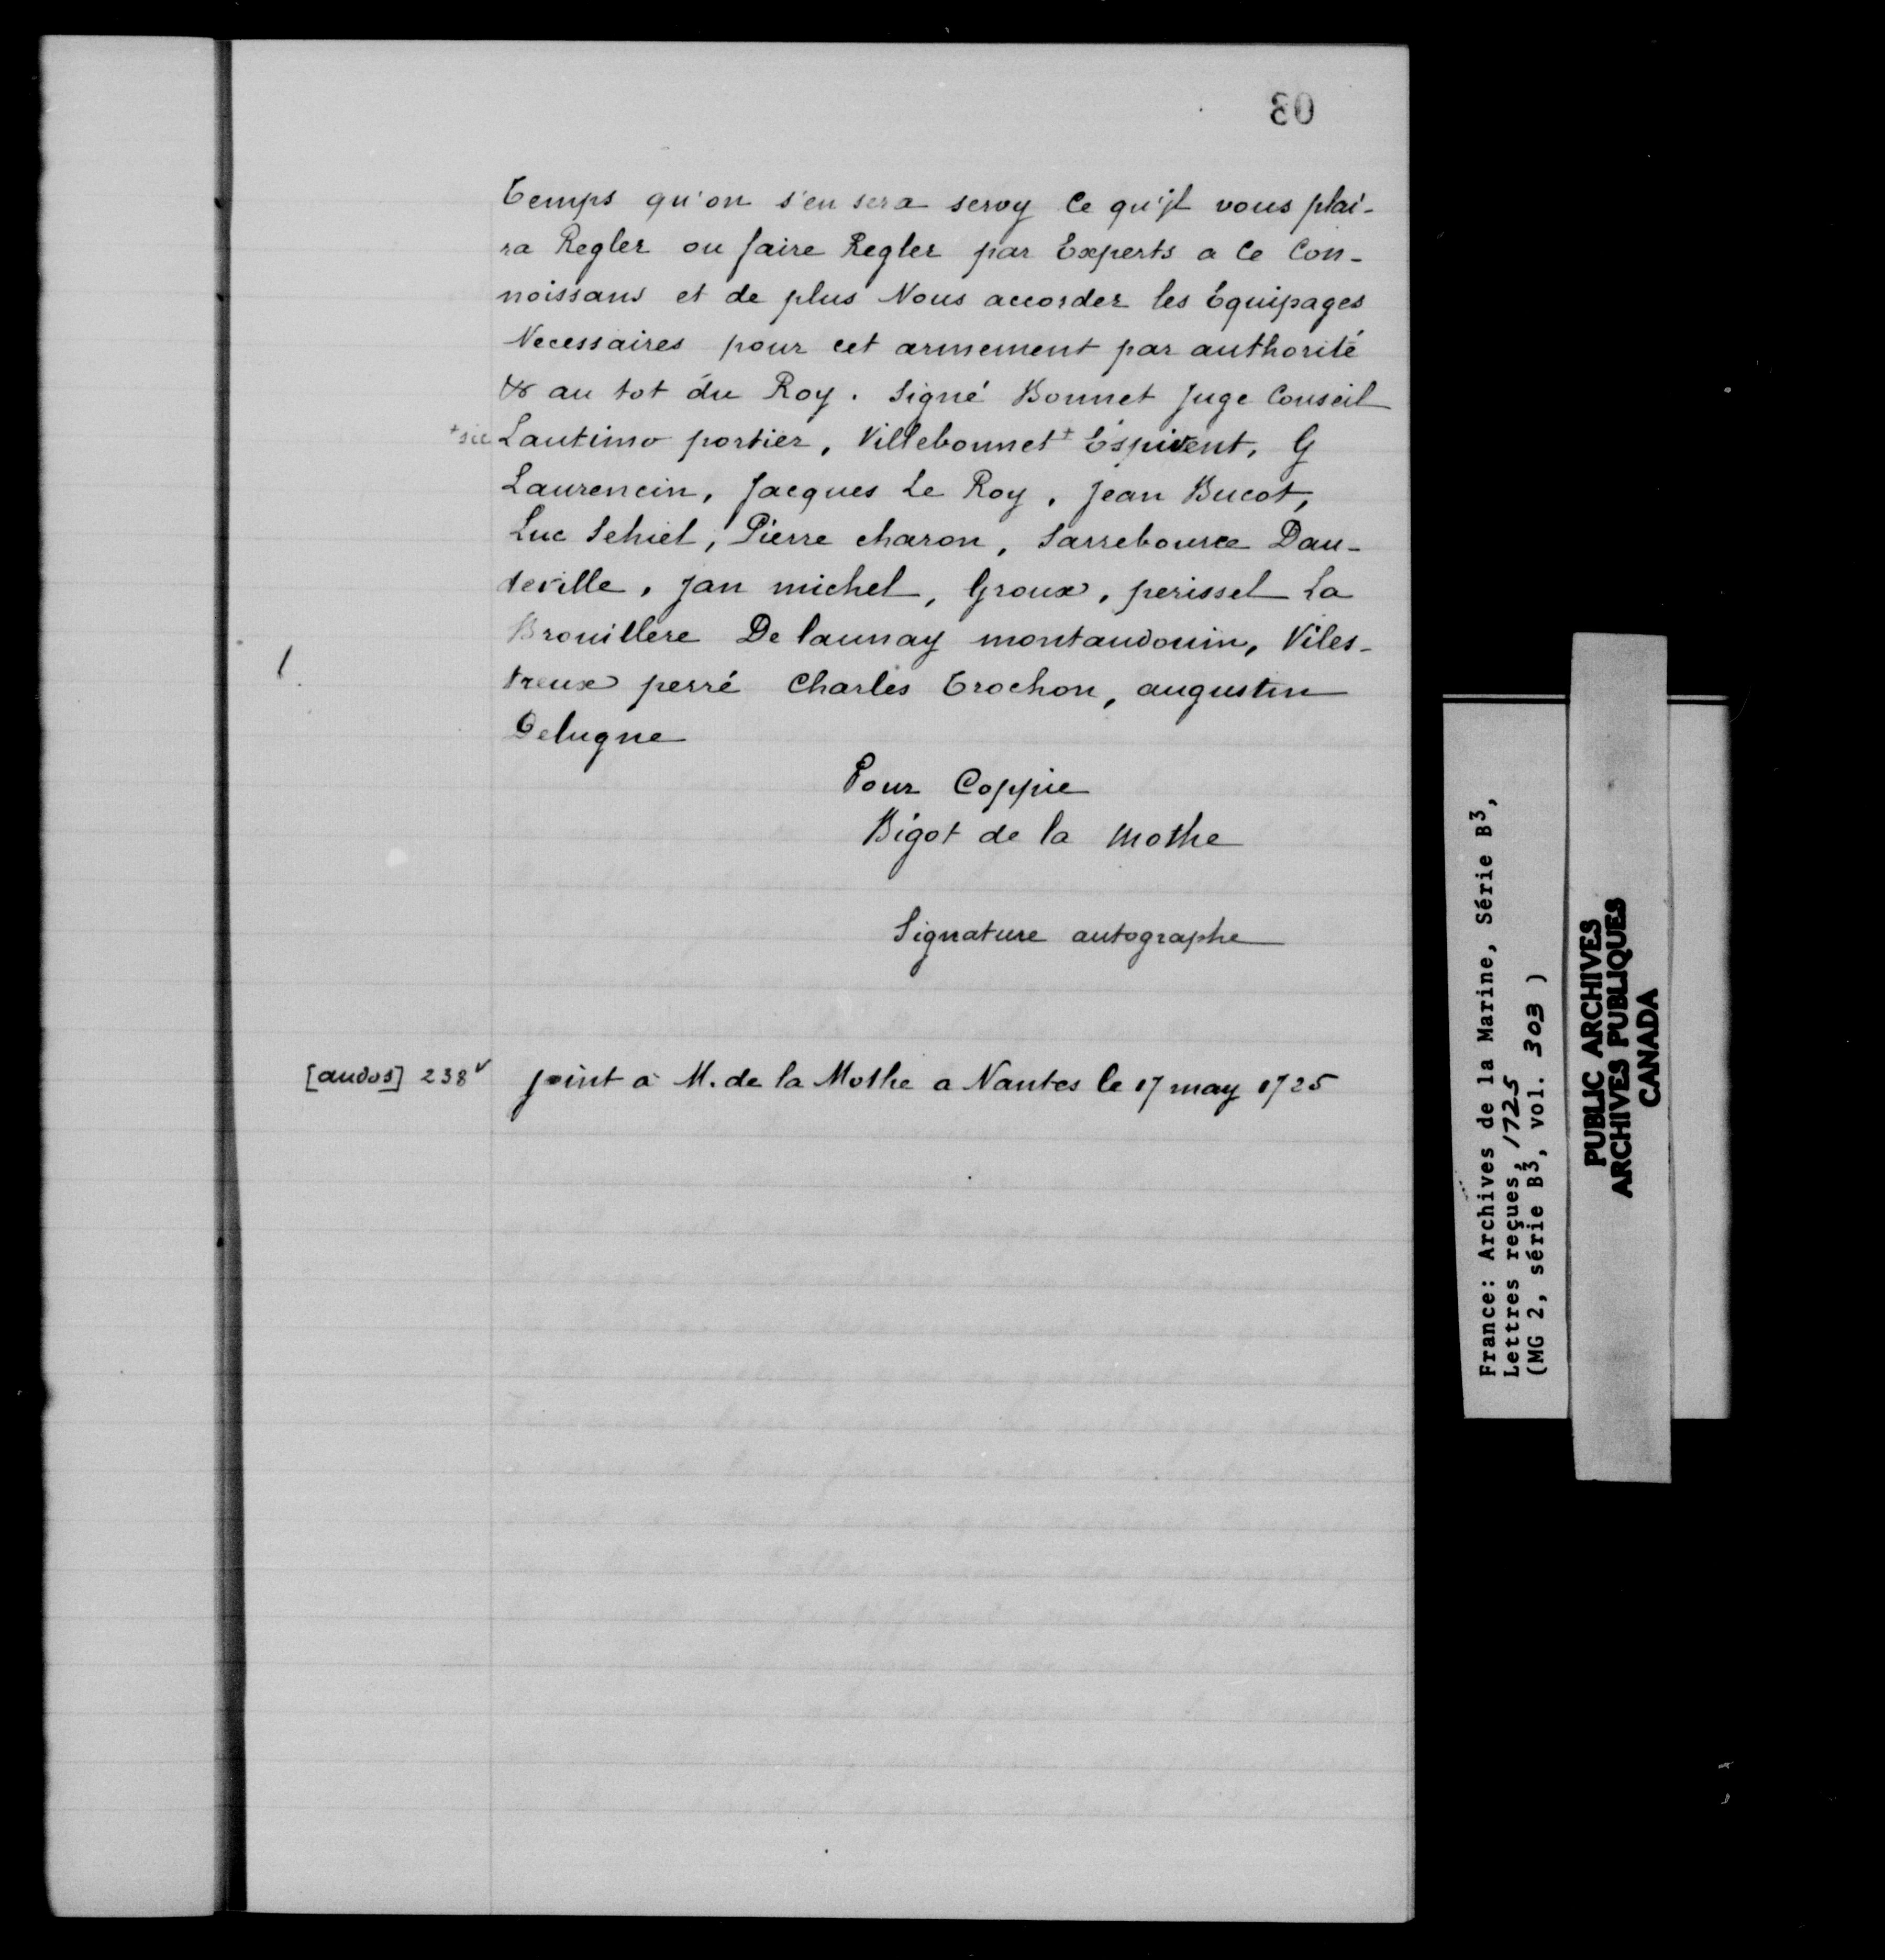 80
Temps qu'on s'en sera servy Ce qu'jl vous plai-
ra Regler ou faire Regler par Experts a Ce Con-
noissans et de plus Nous accorder les Equipages
Necessaires pour cet armement par authorité
& au tot du Roy. Signé Bonnet Juge Conseil
+sic Lautimo portier, Villebonnet + Espivent, G
Laurencin, Jacques Le Roy, Jean Bucot,
Luc Sehiel, Pierre charon, Sarrebource Dau-
deville, Jan michel, Groux, perissel La
Brouillere De launay montaudouin, Viles-
1.
treux perré Charles Trochon, augustin
Delugne
Pour Coppie
Bigot de la Mothe
Signature autographe
[audos] 238v joint a M. de la Mothe a Nantes le 17 may 1725
France: Archives de la Marine, Série B3,
Lettres reçues, 1725
(MG 2, série B3, vol. 303 )
PUBLIC ARCHIVES
ARCHIVES PUBLIQUES
CANADA